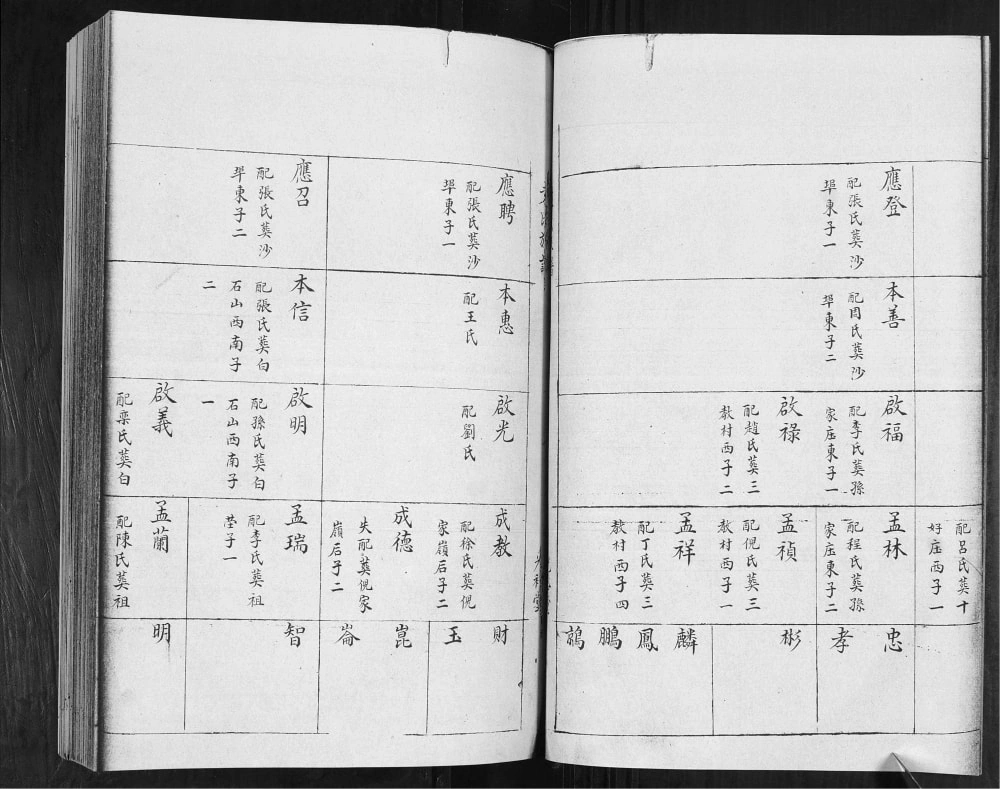 配呂氏葬十
好庄西子一
應登
配張氏葬沙
埠東子一
本善
配周氏葬沙
埠東子二
啟福
配李氏葬孫
家庄東子一
啟祿
配趙氏葬三
教村西子二
孟林
配程氏葬孫
家庄東子二
孟禎
配倪氏葬三
教村西子一
孟祥
配丁氏葬三
教村西子四
忠
孝
彬
麟
鳳
鵬
鷯
應聘
配張氏葬沙
埠東子一
應召
配張氏葬沙
埠東子二
本惠
配王氏
本信
配張氏葬白
石山西南子
二
啟光
配劉氏
啟明
配孫氏葬白
石山西南子
一
啟義
配栾氏葬白
成教
配徐氏葬倪
家嶺后子二
成德
失配葬倪家
嶺后子二
孟瑞
配李氏葬祖
塋子一
孟蘭
配陳氏葬祖
財
玉
崑
崙
智
明